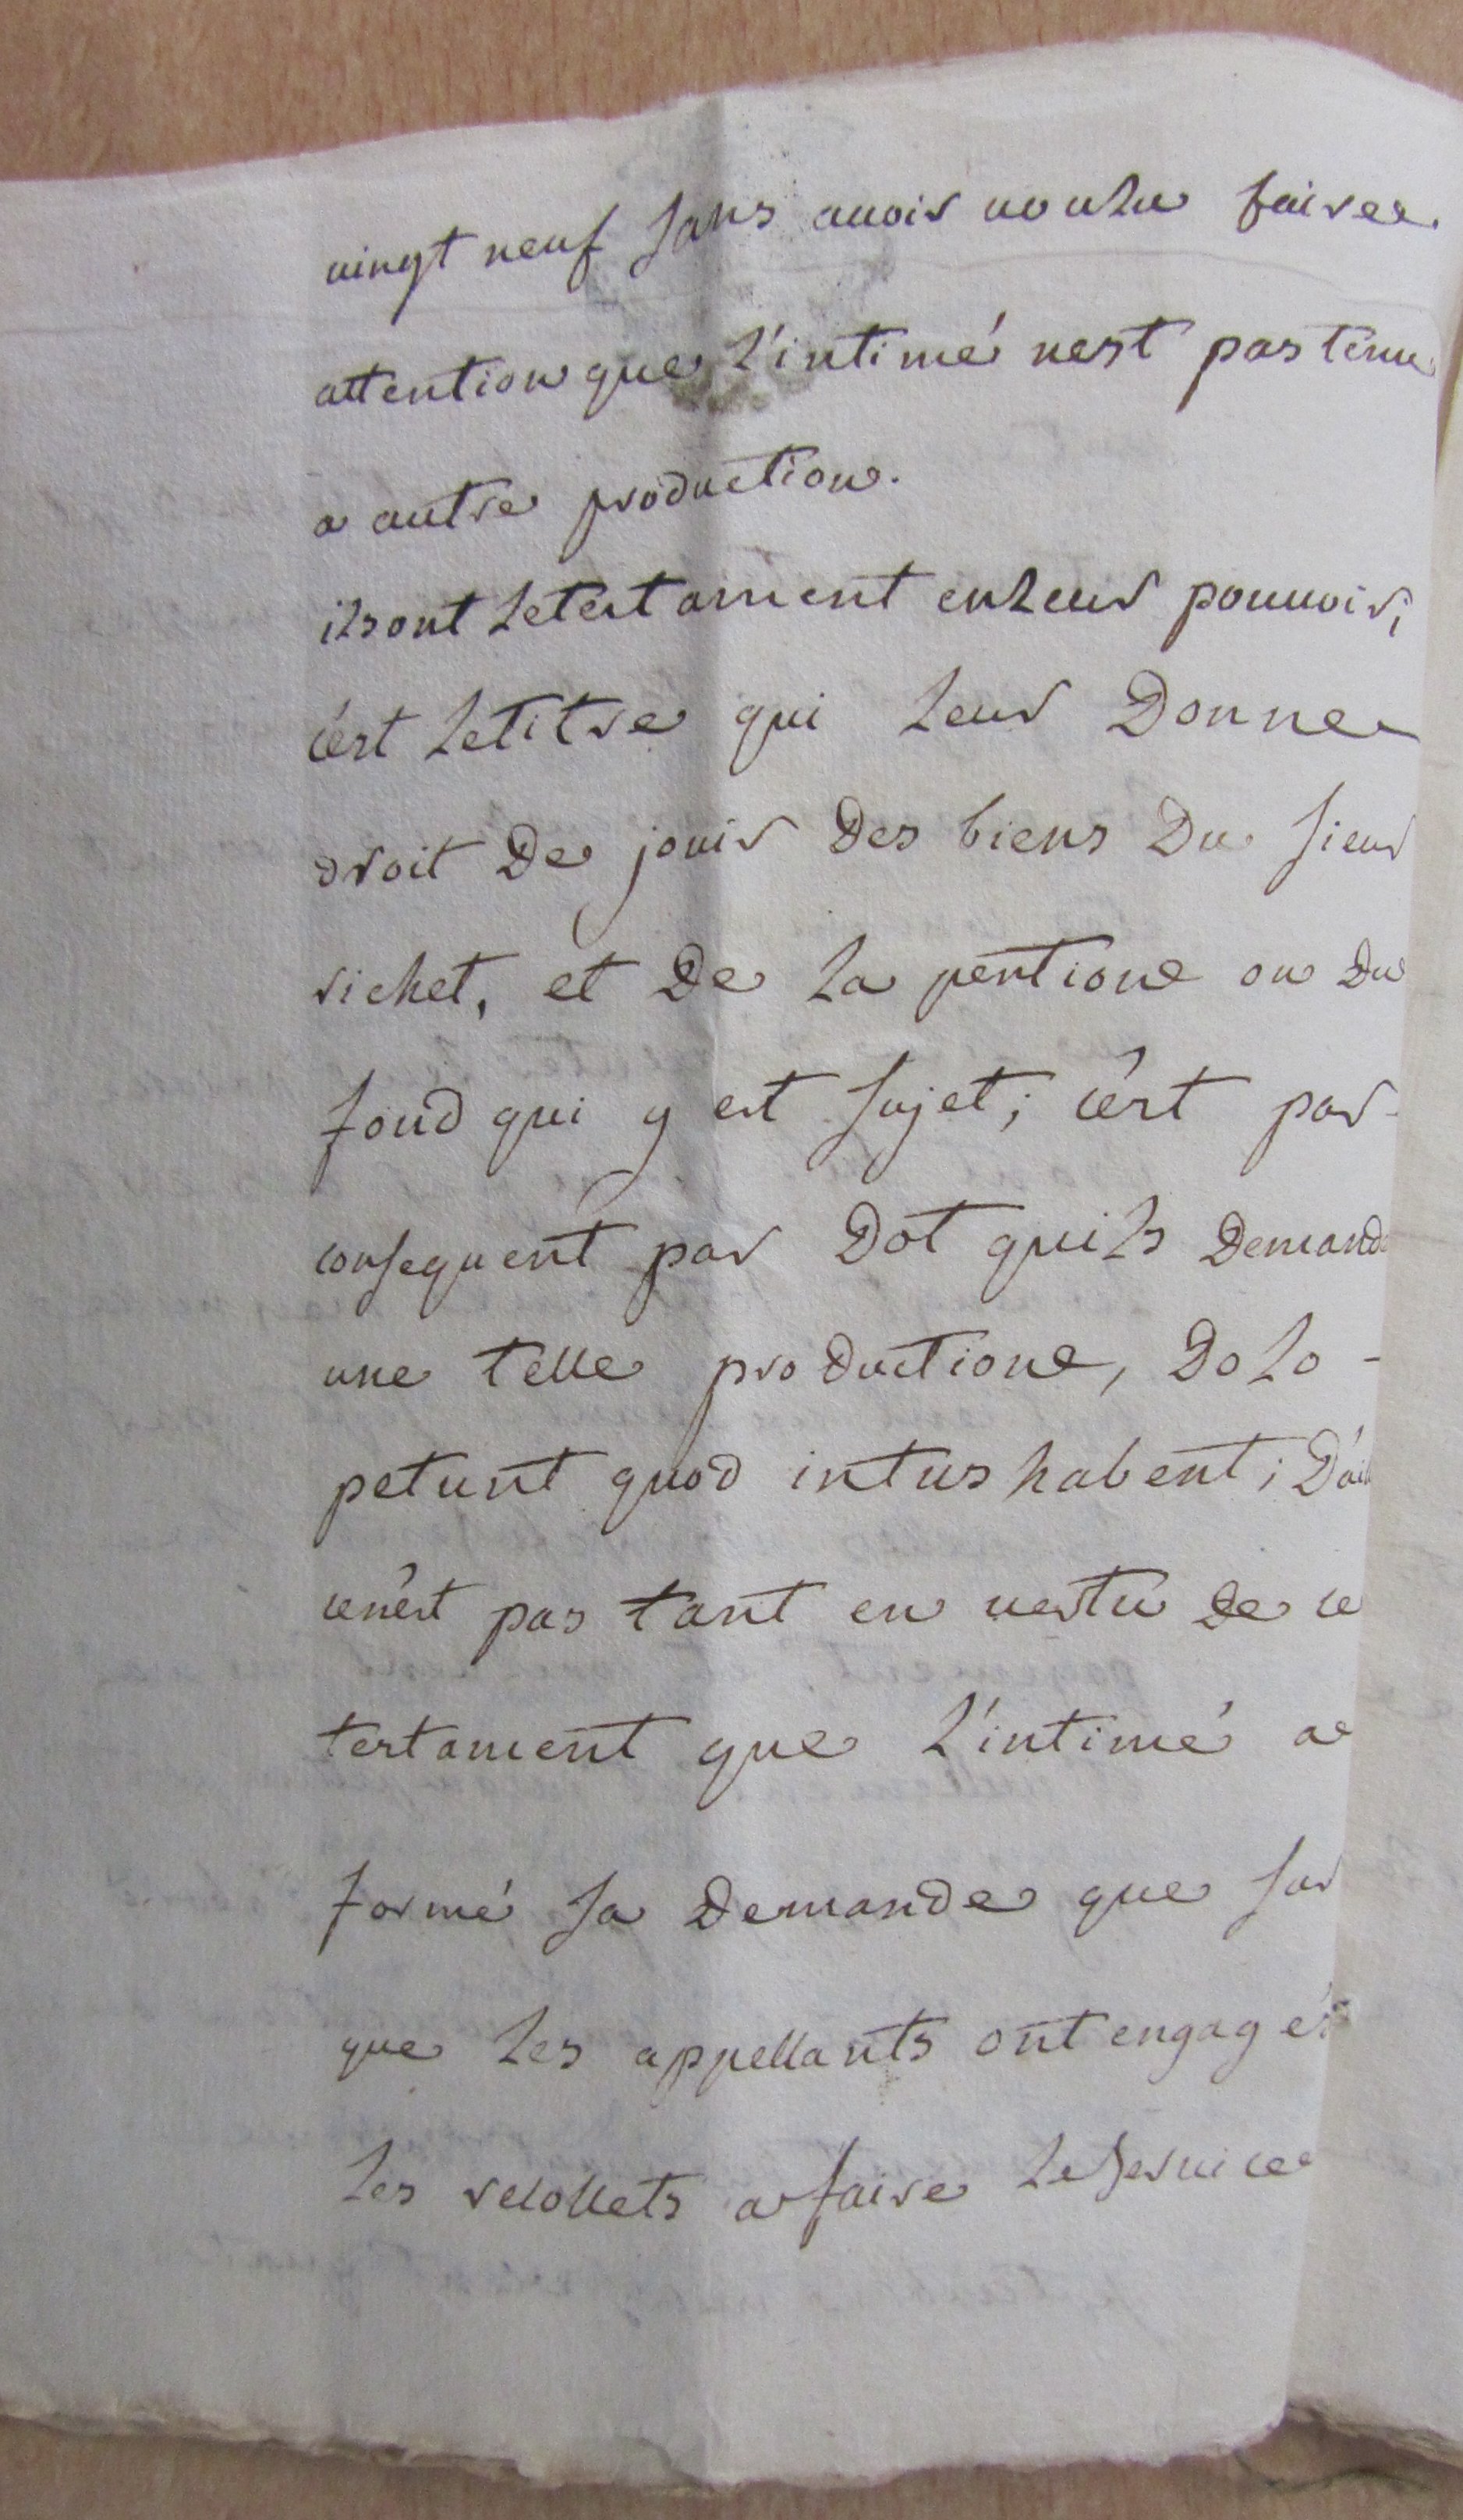 vingt neuf sans avoir voulu faire
attention que l'intimé nest pas tenu
a autre production.
ils ont le testament en leur pouvoir,
c'est le titre qui leur Donne
droit De jouir Des biens Du sieur
richet, et De la pention ou Du
fond qui y est sujet; c'est par
consequent par Dol quils Demand
une telle production, Dolo -
petunt quod intus habent; D'ail
ce n'est pas tant en vertu De ce
testament que l'intimé a
formé sa Demande que sur
que les appellants ont engagé
les recollets a faire le service